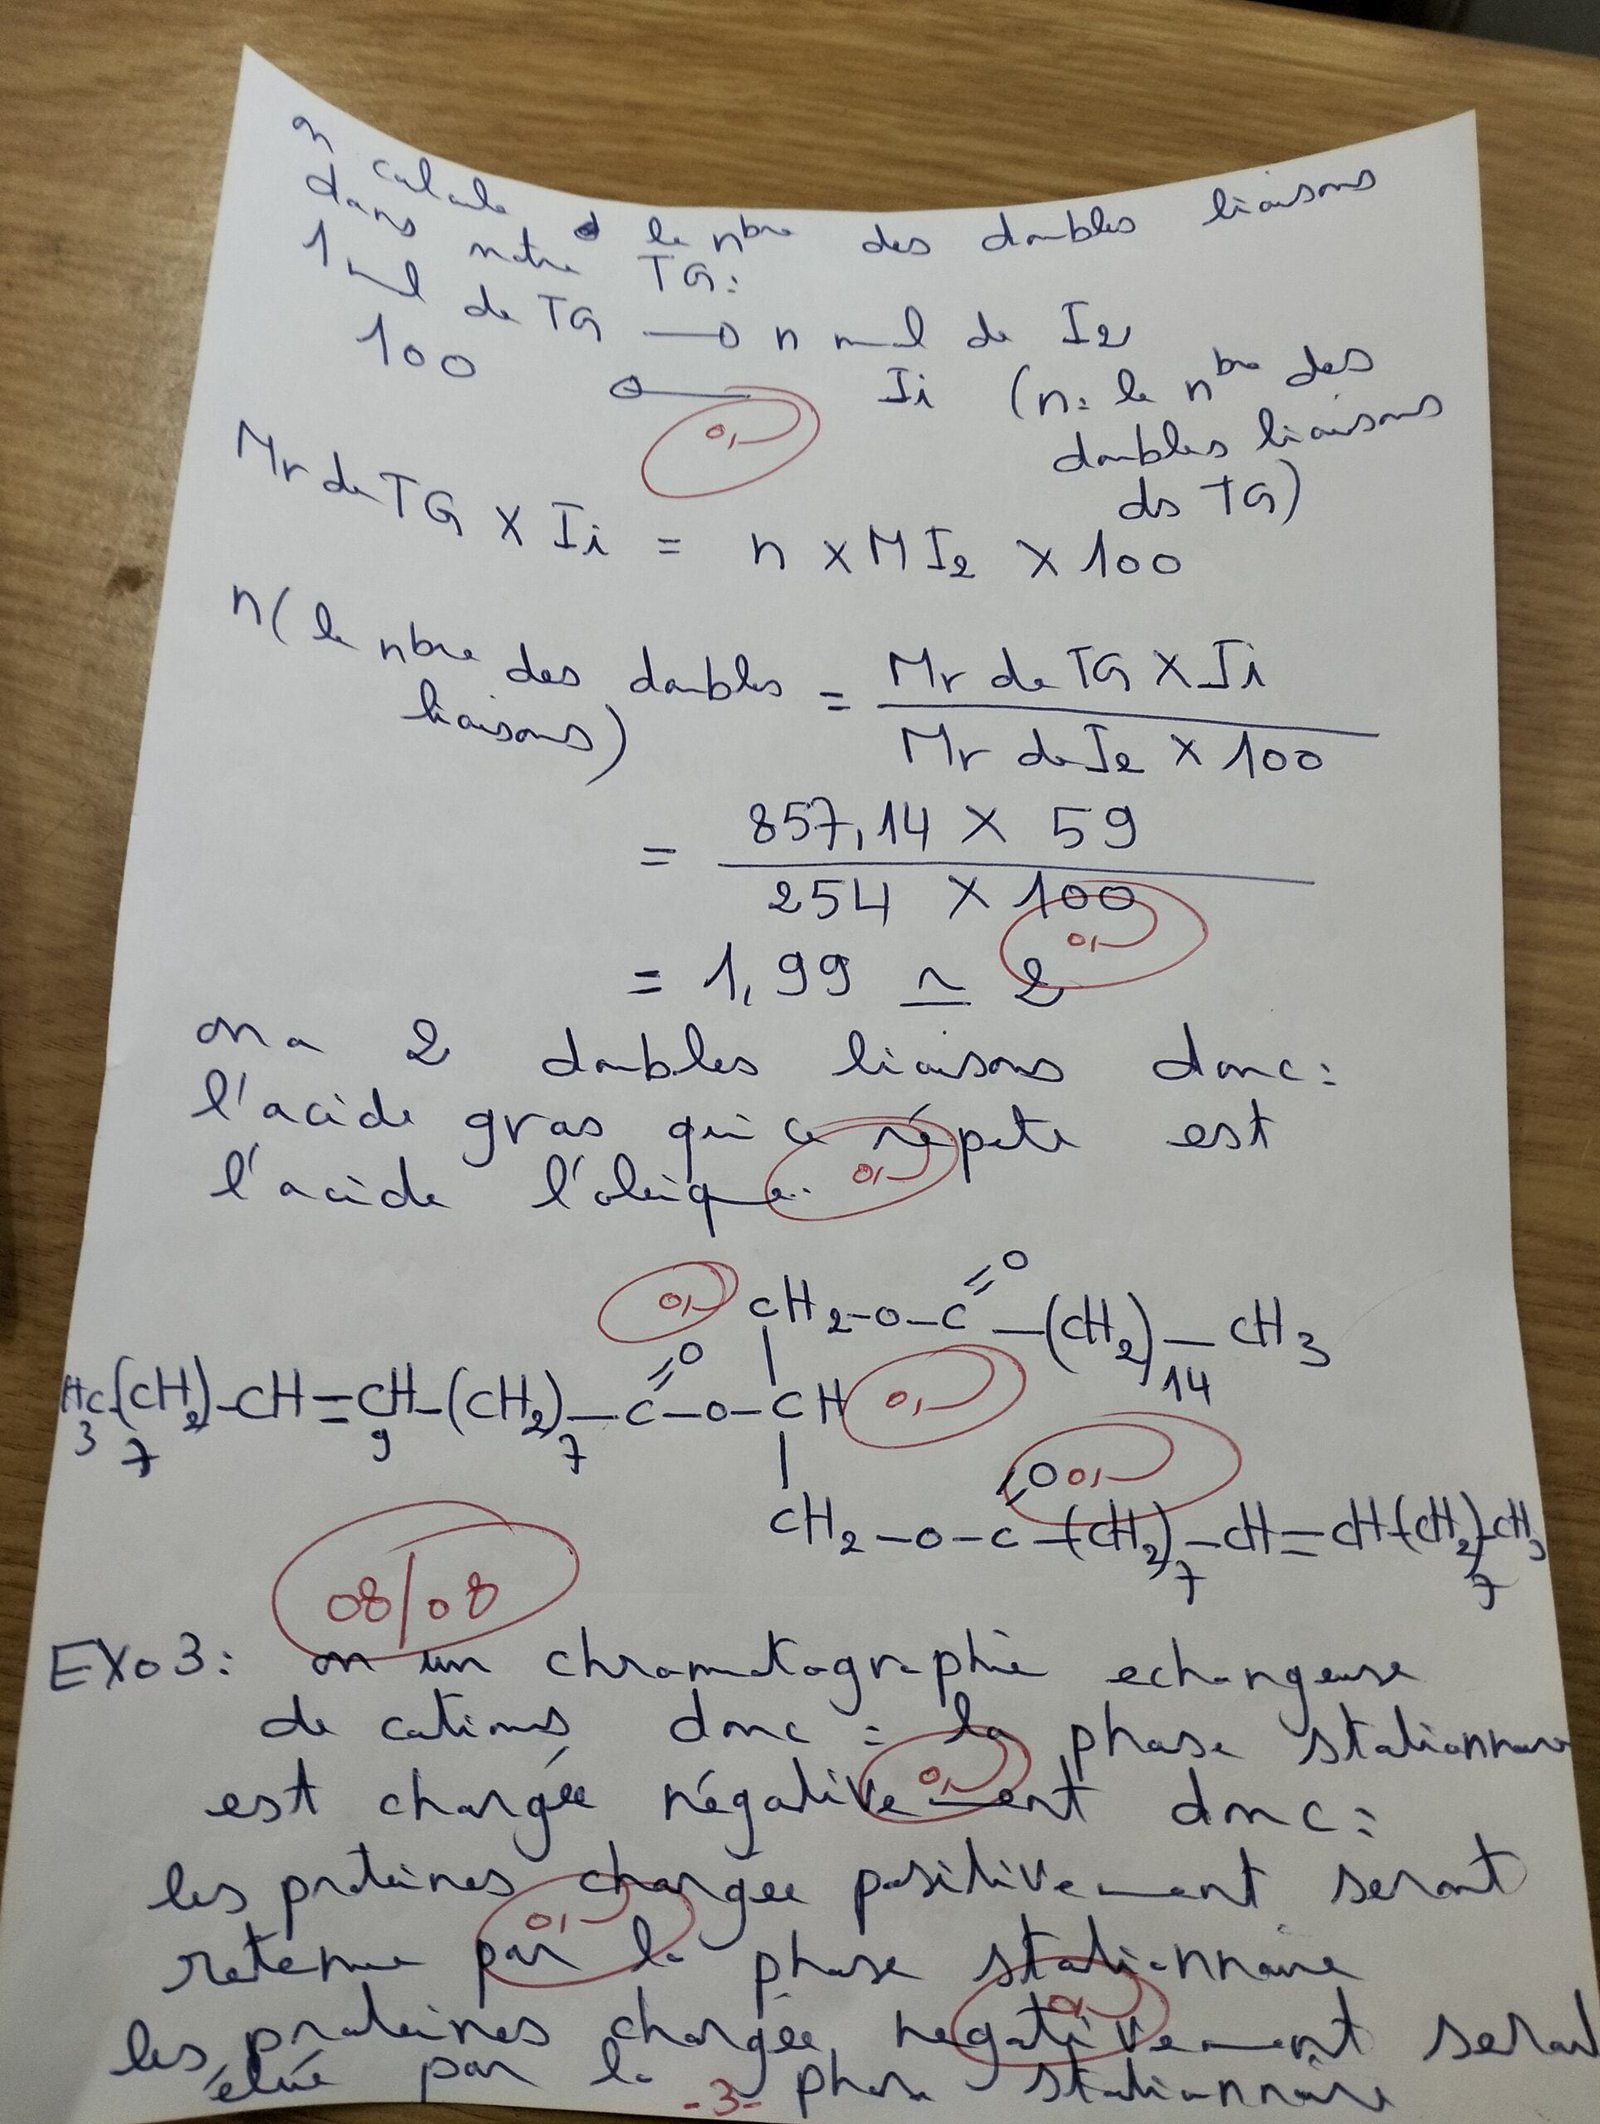 on calcule le nbre des doubles liaisons
dans notre TG:
1 mol de TG → n mol de I2
100 Ii (n: le nbre des
doubles liaisons
ds TG)
0,
Mr de TG X Ii = n x MI2 x 100
n (le nbre des doubles liaisons) = Mr de TG X Ii / Mr de I2 X 100
= 857,14 X 59 / 254 X 100
0,
= 1,99 ≃ 2
on a 2 doubles liaisons donc:
l'acide gras qui ce répete est
l'acide l'oleique.
0,
0, CH2-O-C=O-(CH2)14-CH3
H3C-(CH2)7-CH=CH9-(CH2)7-C=O-O-CH 0,
CH2-O-C=O-(CH2)7-CH=CH-(CH2)7-CH3
0,
08/08
EXo3: on un chromatographie echangeuse
de cations donc: la phase stationnaire
est chargée négativement donc:
0,
les protéines chargée positivement seront
retenue par la phase stationnaire
0,
les protéines chargée negativement seront
0,
élué par la phase stationnaire
-3-